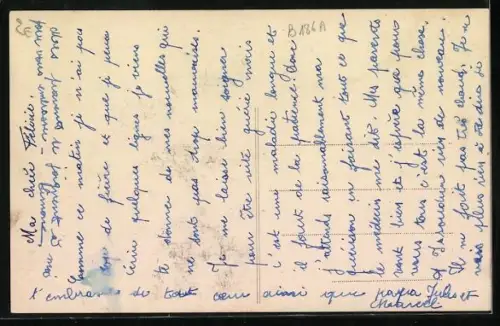 Ma chère Félicie
Comme ce matin je n'ai pas
trop de fièvre et que je peux
écrire quelques lignes je viens
te donner de mes nouvelles qui
ne sont pas trop mauvaises.
Je me laisse bien soigner
pour être vite guérie mais
c'est une maladie longue et
il faut de la patience. Donc
j'attends raisonnablement ma
guérison en faisant tout ce que
le médecin me dit. Mes parents
sont bien et j'espère que pour
vous tous c'est la même chose.
A Issoudun rien de nouveau.
Il ne fait pas très chaud. Je ne
vois plus rien à te dire je
t'embrasse de tout cœur ainsi que papa Jules et
Marcel
B186A